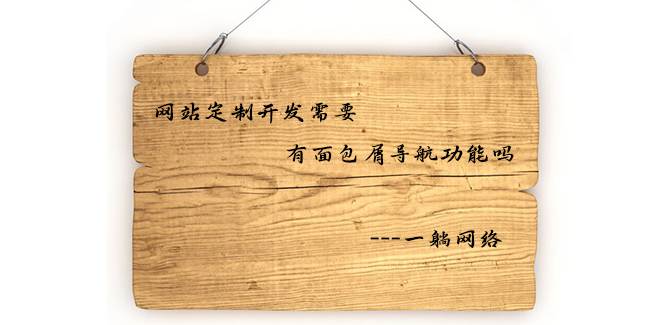 网站定制开发需要
有面包屑导航功能吗
---一躺网络